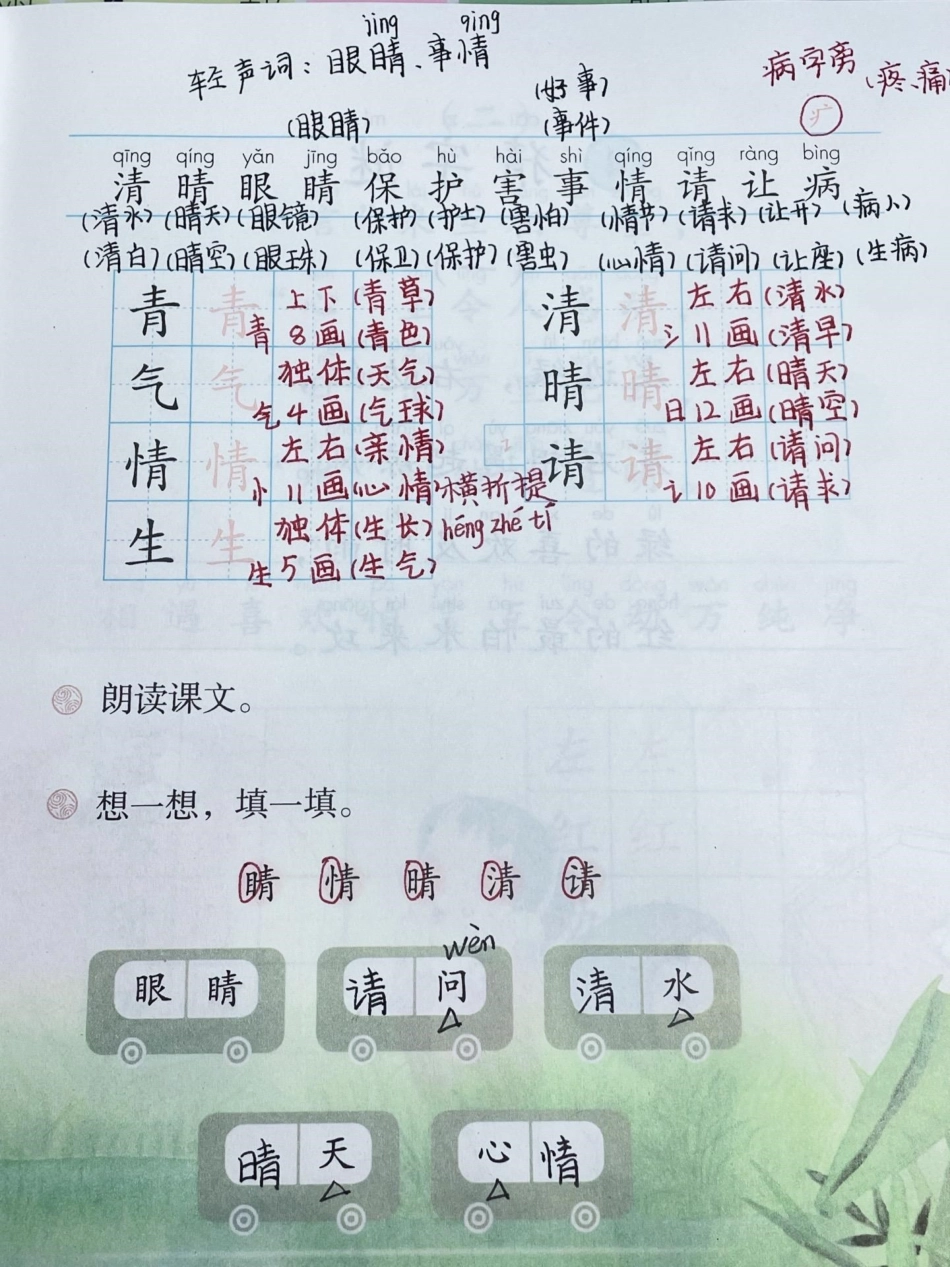 jing qing
轻声词：眼睛、事情
病字旁（疼、痛
疒
（好事）
（眼睛）（事件）
qīng qíng yǎn jīng bǎo hù hài shì qíng qǐng ràng bìng
清 晴 眼 睛 保 护 害 事 情 请 让 病
（清水）（晴天）（眼镜）（保护）（护士）（害怕）（情节）（请求）（让开）（病人）
（清白）（晴空）（眼珠）（保卫）（保护）（害虫）（心情）（请问）（让座）（生病）
青 青 上下（青草）
青 8画（青色）
气 气 独体（天气）
气 4画（气球）
情 情 左右（亲情）
忄 11画（心情）
生 生 独体（生长）
生 5画（生气）
清 清 左右（清水）
氵 11画（清早）
晴 晴 左右（晴天）
日 12画（晴空）
请 请 左右（请问）
讠 10画（请求）
横折提
héng zhé tí
朗读课文。
想一想，填一填。
睛 情 晴 清 请
wèn
眼睛 请问 清水
晴天 心情